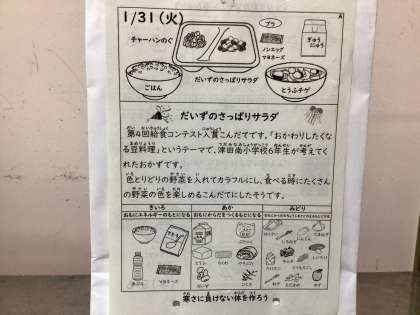 1/31(火)
A
チャーハンのぐ
プラ
ノンエッグ
マヨネーズ
ぎゅう
にゅう
ごはん
だいずのさっぱりサラダ
とうふチゲ
だいずのさっぱりサラダ
第4回給食コンテスト入賞こんだてです。「おかわりしたくな
る豆料理」というテーマで、津田南小学校6年生が考えてく
れたおかずです。
色とりどりの野菜を入れてカラフルにし、食べる時にたくさん
の野菜の色を楽しめるこんだてにしたそうです。
きいろ
あか
みどり
おもにエネルギーのもとになる
おもにからだをつくるもとになる
マヨネーズ
とうふ
だいず
寒さに負けない体を作ろう